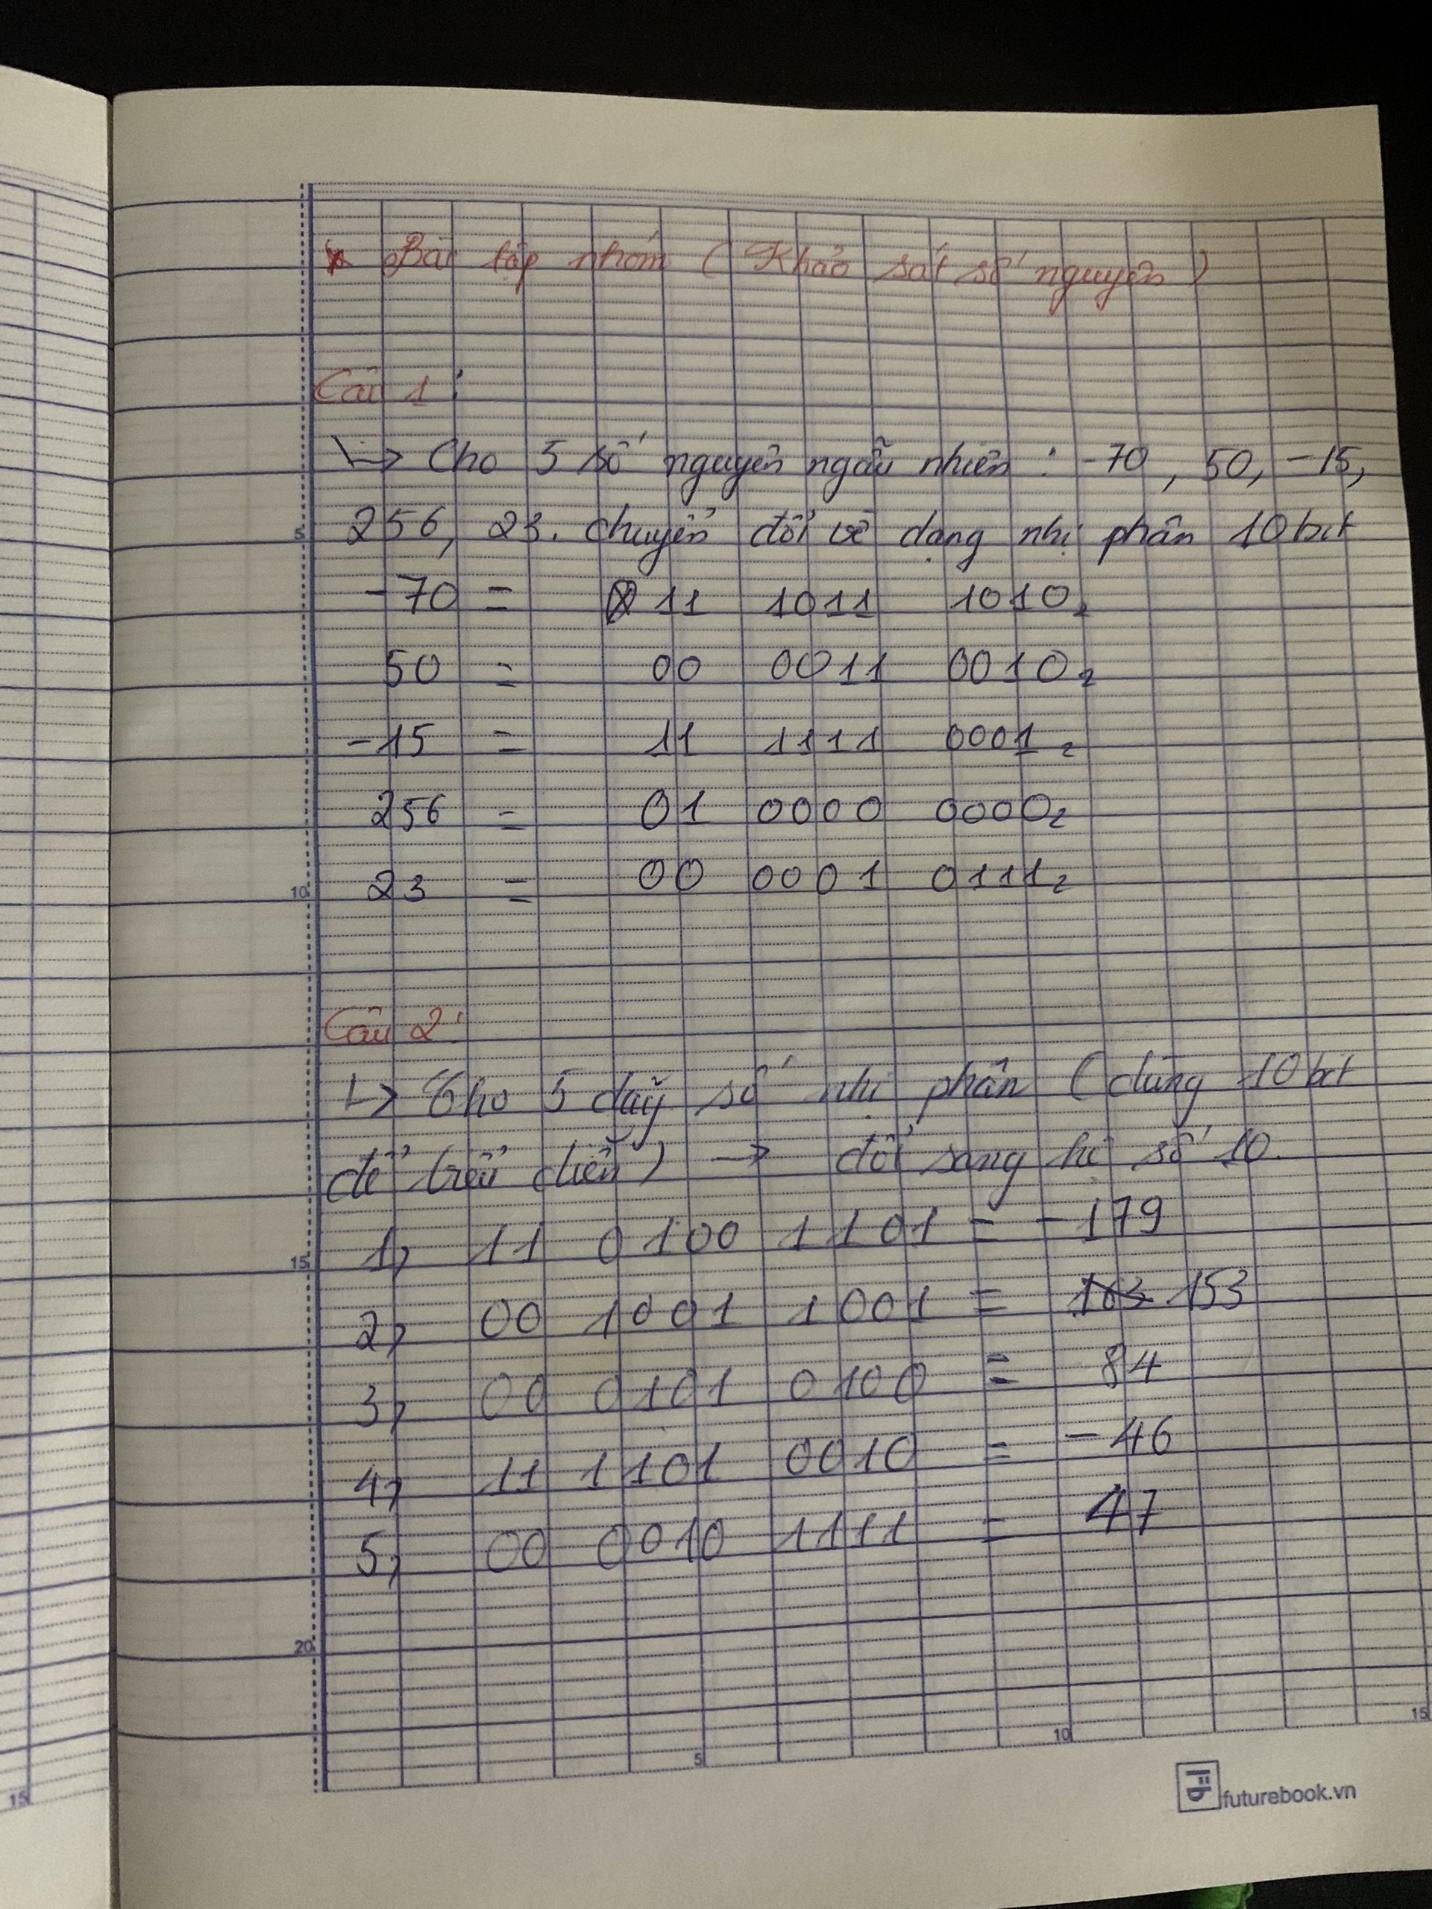 * Bài tập nhóm ( Khảo sát số nguyên )
Câu 1 :
↳ Cho 5 số nguyên ngẫu nhiên : -70 , 50, -15,
256, 23. chuyển đổi về dạng nhị phân 10 bit
-70 = 11 1011 1010₂
50 = 00 0011 0010₂
-15 = 11 1111 0001₂
256 = 01 0000 0000₂
23 = 00 0001 0111₂
Câu 2 :
↳ Cho 5 dãy số nhị phân ( dùng 10 bit
để biểu diễn ) → đổi sang hệ số 10.
1, 11 0100 1101 = -179
2, 00 1001 1001 = 163 153
3, 00 0101 0100 = 84
4, 11 1101 0010 = -46
5, 00 0010 1111 = 47
5
10
15
20
5
10
15
15
futurebook.vn